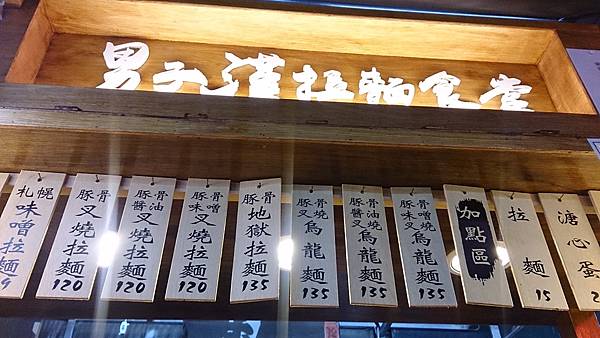 男子漢拉麵食堂
札幌味噌拉麵
豚骨叉燒拉麵 120
豚骨醬油叉燒拉麵 120
豚骨味噌叉燒拉麵 120
豚骨地獄拉麵 135
豚骨叉燒烏龍麵 135
豚骨醬油叉燒烏龍麵 135
豚骨味噌叉燒烏龍麵 135
加點區
拉麵 15
溏心蛋